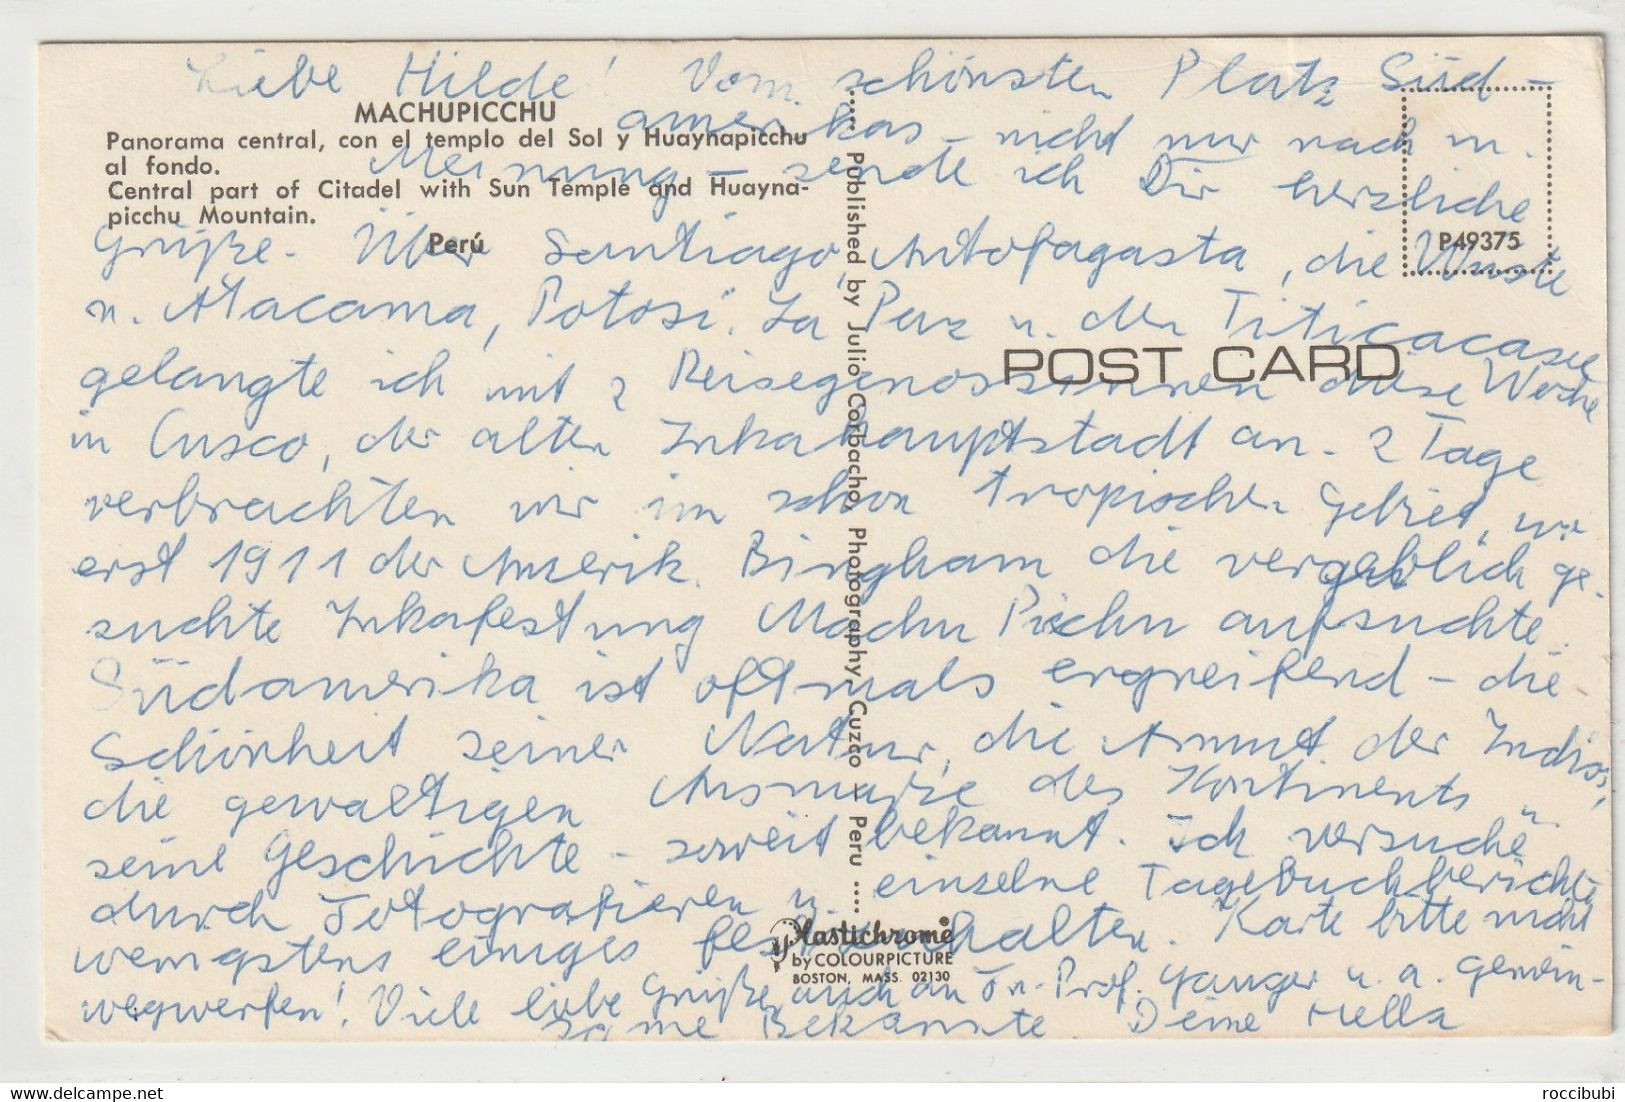 Liebe Hilde! Vom schönsten Platz Süd-
amerikas - nicht nur nach m.
Meinung - sende ich Dir herzliche
Grüße. Über Santiago, Antofagasta, die Wüste
n. Atacama, Potosi. La Paz u. den Titicacasee
gelangte ich mit 2 Reisegenossinnen diese Woche
in Cusco, der alten Inkahauptstadt an. 2 Tage
verbrachten wir im schon tropischen Gebiet, wo
erst 1911 der Amerik. Bingham die vergeblich ge-
suchte Inkafestung Machu Picchu aufsuchte.
Südamerika ist oftmals ergreifend - die
Schönheit seiner Natur, die Armut der Indios,
die gewaltigen Ausmaße des Kontinents u.
seine Geschichte - soweit bekannt. Ich versuche
durch Fotografieren u. einzelne Tagebuchberichte
wenigstens einiges festzuhalten. Karte bitte nicht
wegwerfen! Viele liebe Grüße, auch an Fr. Prof. u. a. gemein-
same Bekannte. Deine Hella
MACHUPICCHU
Panorama central, con el templo del Sol y Huaynapicchu
al fondo.
Central part of Citadel with Sun Temple and Huayna-
picchu Mountain.
Perú
..... Published by Julio Corbacho, Photography, Cuzco — Peru .....
P49375
POST CARD
Plastichrome®
by COLOURPICTURE
BOSTON, MASS. 02130
delcampe.net
roccibubi